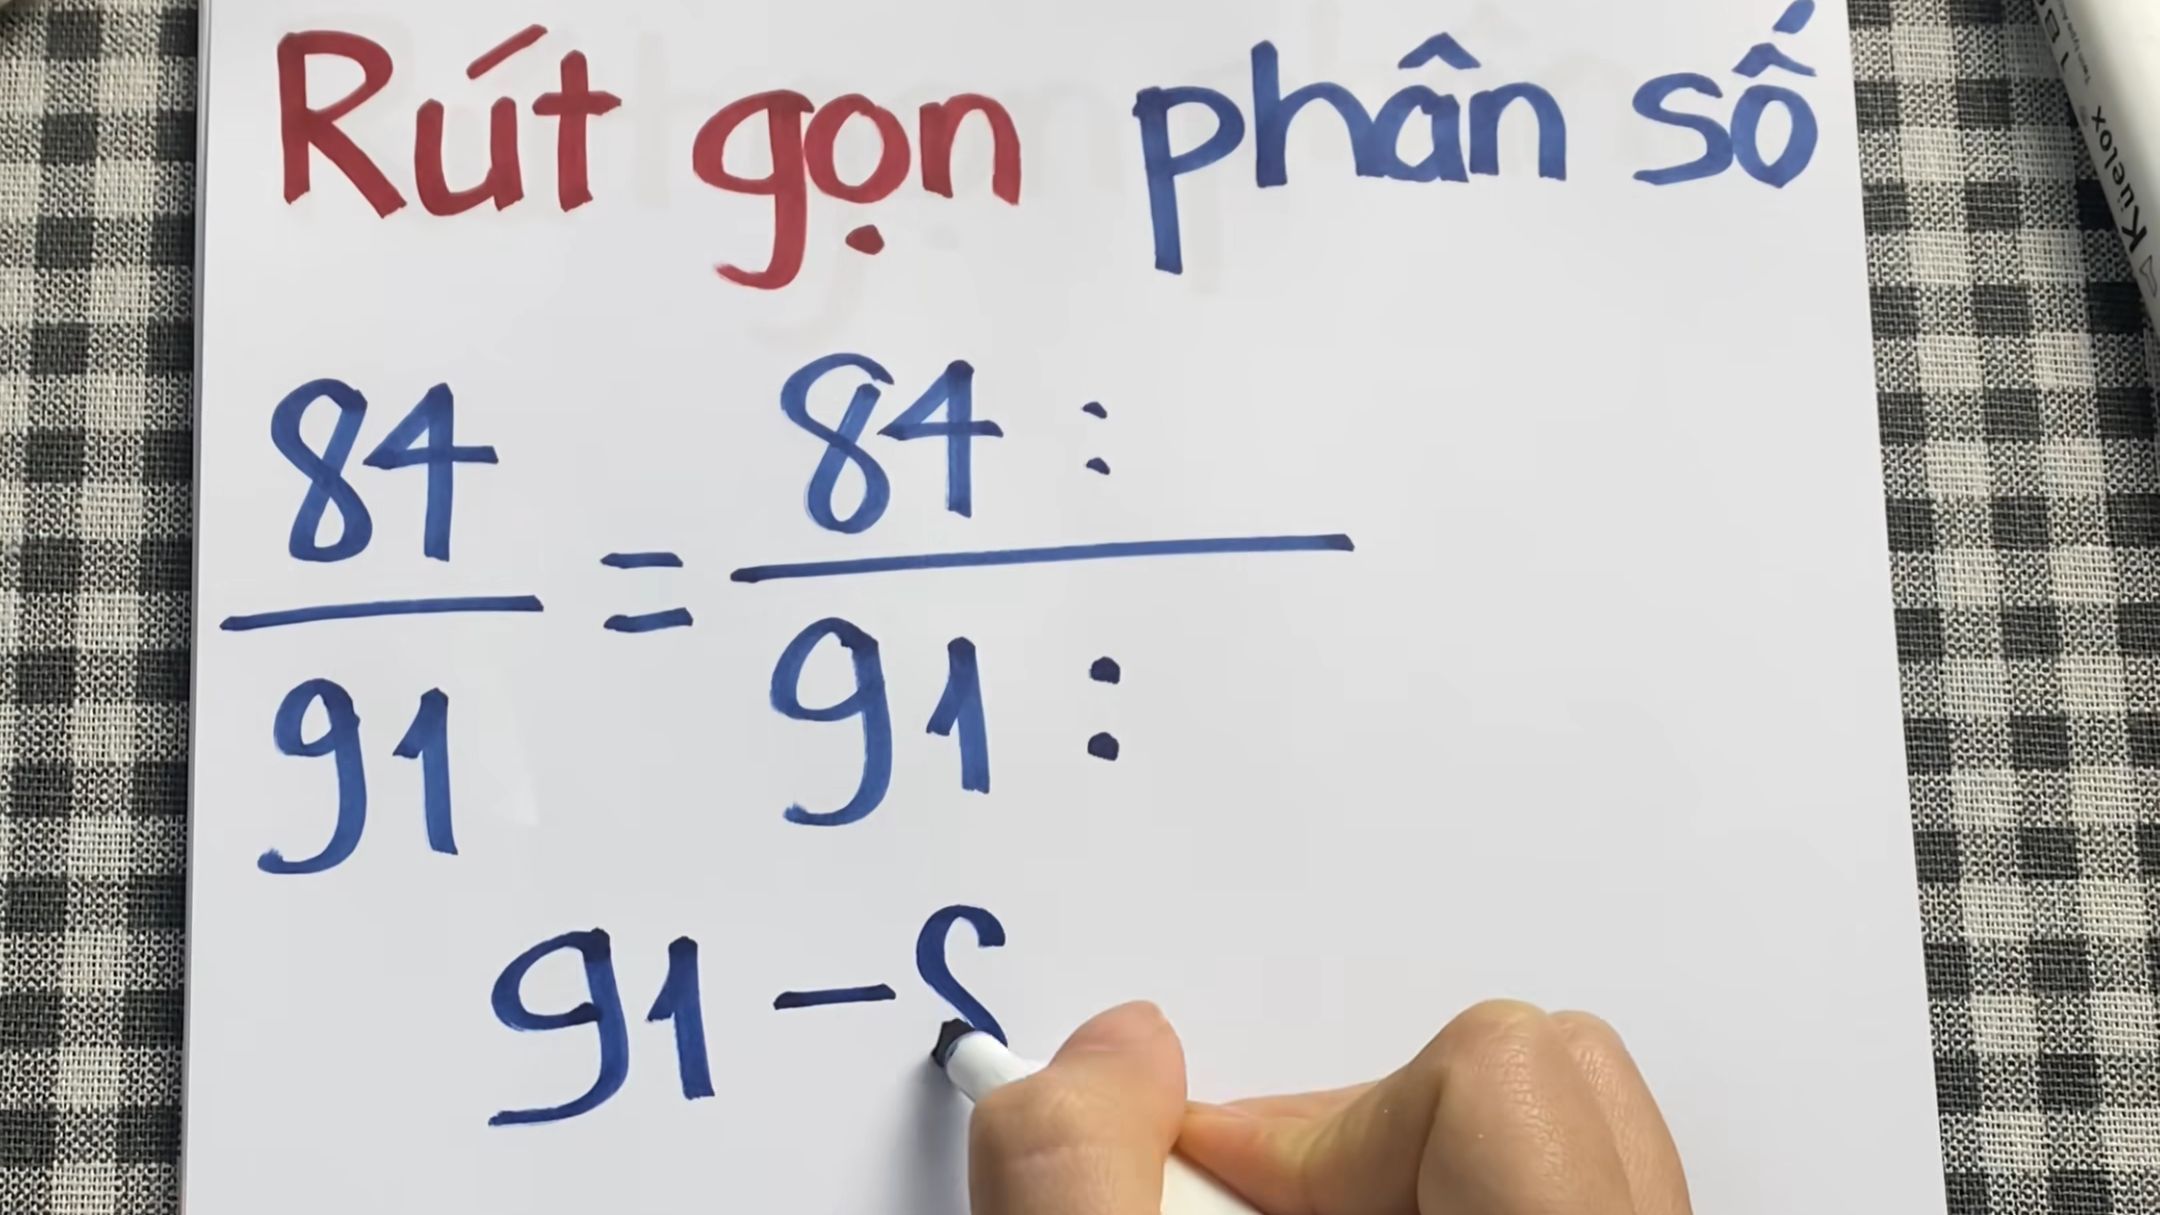 Rút gọn phân số
84/91 = 84 : / 91 :
91 –
Kuelox